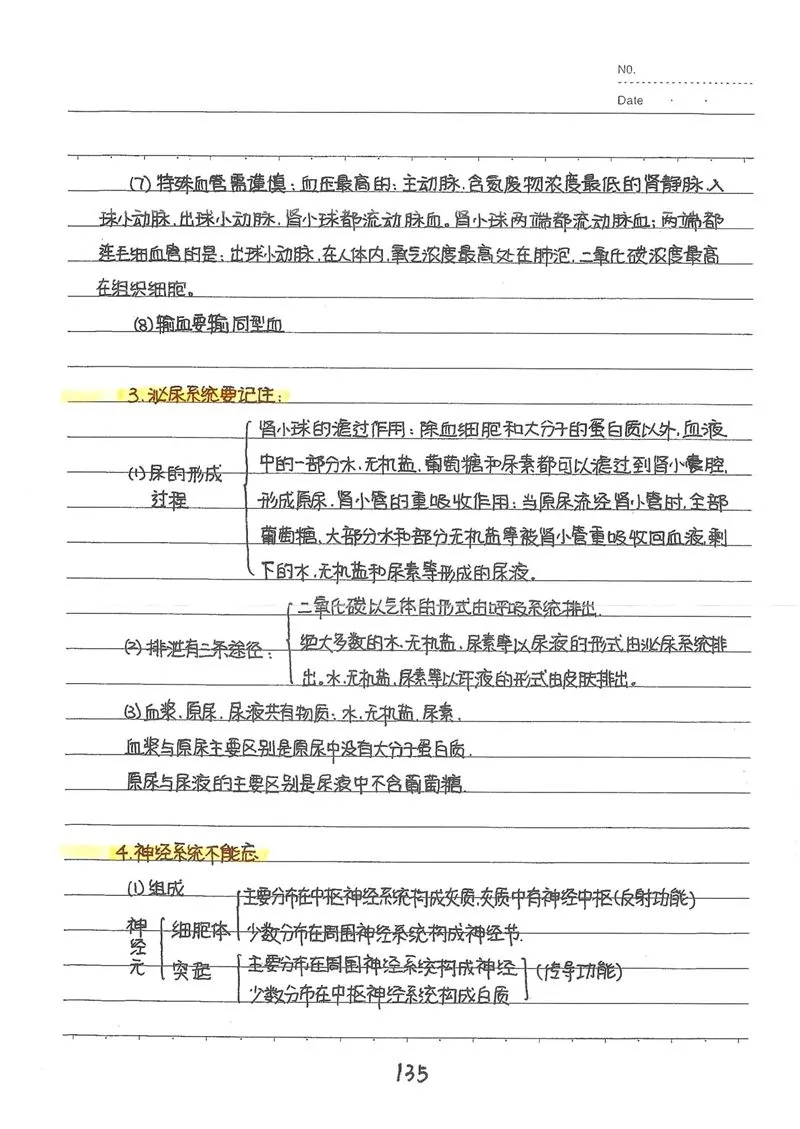 NO.
Date · ·
(7) 特殊血管需谨慎:血压最高的:主动脉.含氮废物浓度最低的肾静脉.入
球小动脉,出球小动脉.肾小球都流动脉血。肾小球两端都流动脉血;两端都
连毛细血管的是:出球小动脉,在人体内,氧气浓度最高处在肺泡,二氧化碳浓度最高
在组织细胞。
(8)输血要输同型血
3.泌尿系统要记住:
(1)尿的形成
过程
肾小球的滤过作用:除血细胞和大分子的蛋白质以外,血液
中的一部分水.无机盐.葡萄糖和尿素都可以滤过到肾小囊腔,
形成原尿.肾小管的重吸收作用:当原尿流经肾小管时,全部
葡萄糖、大部分水和部分无机盐等被肾小管重吸收回血液,剩
下的水.无机盐和尿素等形成的尿液。
(2)排泄有三条途径:
二氧化碳以气体的形式由呼吸系统排出.
绝大多数的水.无机盐.尿素等以尿液的形式由泌尿系统排
出。水.无机盐.尿素等以汗液的形式由皮肤排出。
(3)血浆.原尿.尿液共有物质:水.无机盐.尿素.
血浆与原尿主要区别是原尿中没有大分子蛋白质.
原尿与尿液的主要区别是尿液中不含葡萄糖.
4.神经系统不能忘
(1)组成
神经元
细胞体
主要分布在中枢神经系统构成灰质,灰质中有神经中枢(反射功能)
少数分布在周围神经系统构成神经节.
突起
主要分布在周围神经系统构成神经
少数分布在中枢神经系统构成白质
(传导功能)
135